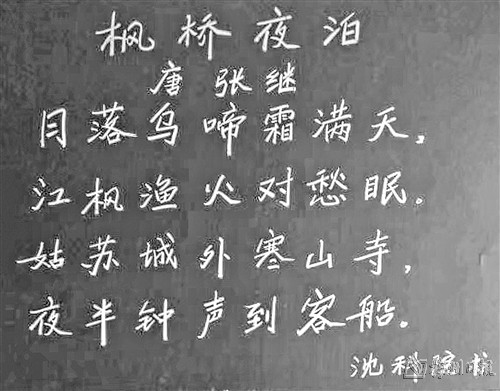 枫桥夜泊
唐 张继
月落乌啼霜满天,
江枫渔火对愁眠.
姑苏城外寒山寺,
夜半钟声到客船.
沈科院